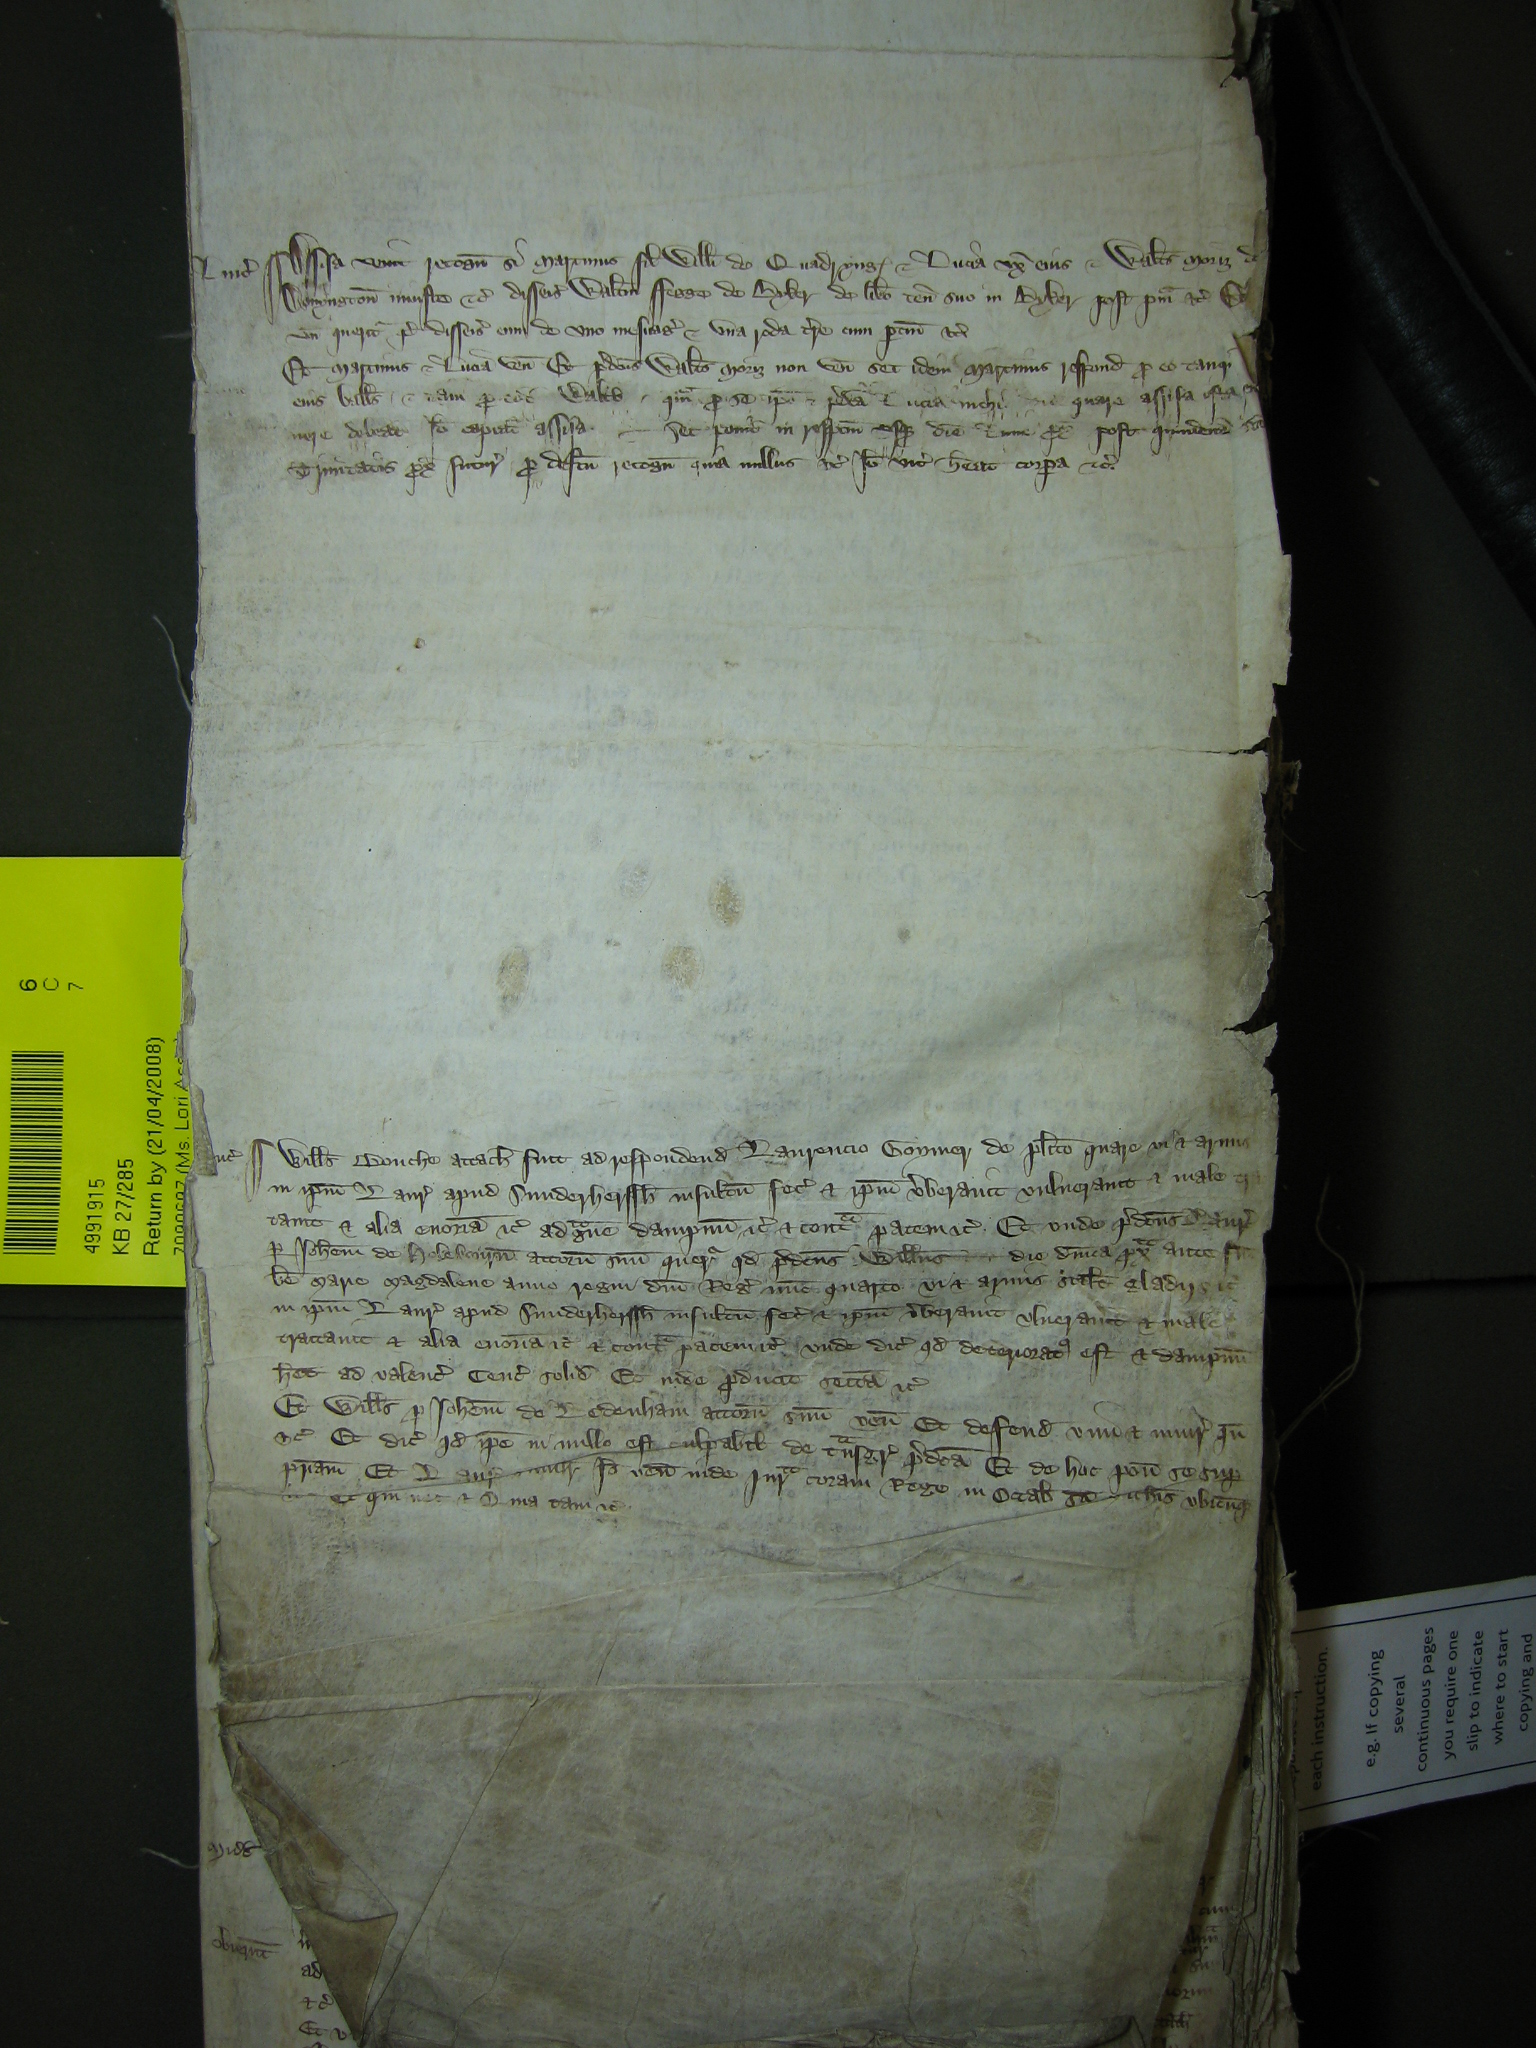 Linc̃ Assisa venit recogn̄ si Martinus fil̃ Will̃i de Quadryng̃ & Lucia vx̃ eius & Walt̃s Moriz de
Donyngton̄ iniuste &c̃ disseis̃ Walt̃m ffegge de Byker de lib̃o ten̄ suo in Byker post pim̃ &c̃ Et
vn̄ querit̃ q̃ disseis̃ eum de vno mesuag̃ & vna roda t̃re cum ptin̄ &c̃
Et Martinus & Lucia ven̄ Et p̃dc̃us Walt̃s Moriz non ven̄ set idem Martinus respond̃ p̱ eo tanq̃
eius ball̃s & tam p̱ eod̃ Walt̃o qm̃ p̱ se ip̃o & p̃dc̃a Lucia nichil dic̃ quare assisa ista
nere debeat Iõ capiat̃ assisa Set ponit̃ in respc̃m vsq̃ diē Lune p̱x̃ post quindenā Sc̃e
Trinitatis p̱x̃ futur̃ p̱ defc̃u recogn̄ quia nullus &c̃ Iõ vic̃ h̃eat corp̱a &c̃
Will̃s Bouche attach̃ fuit ad respondend̃ Laurencio Goymer de pl̃ito quare vi & armis
in ip̃m Laur̃ apud Sunderhersssh̃ insultū fec̃ & ip̃m ṽberauit vulnerauit & male tra
tauit & alia enormia &c̃ ad g̃ue dampnū &c̃ & cont̃ pacem &c̃ Et vnde p̃dc̃us Laur̃
p̱ Joh̃em de attorn̄ suū querit̃ qd̃ p̃dc̃us Will̃us die d̃nica p̱x̃ ante
be Marie Magdalene anno regni dn̄i Reg̃ nūc quarto vi & armis scil̃t gladijs &c̃
in ip̃m Laur̃ apud Sunderhersssh̃ insultū fec̃ & ip̃m ṽberauit vlnerauit & male
tractauit & alia enormia &c̃ & cont̃ pacem &c̃ vnde dic̃ qd̃ deteriorat⁹ est & dampnū
h̃et ad valenc̃ Cent̃ solid̃ Et inde p̱ducit sectā &c̃
Et Will̃s p̱ Joh̃em de Ledenham attorn̄ suū ven̄ Et deffend̃ vim & iniur̃ qn̄
&c̃ Et dic̃ qd̃ ip̃e in nullo est culpabil̃ de t̃nsgr̃ p̃dc̃a Et de hoc pon̄ se sup̱
pat̃am Et Laur̃ simil̃r Iõ ven̄ inde Iur̃ coram Rege in Octab̃ Sc̃i Mich̃is vbicūq̃
&c̃ Et qui nec &c̃ Quia tam &c̃
Midd̃
ad
&c̃
Et
4991915
KB 27/285
Return by (21/04/2008)
6
C
7
each instruction.
e.g. If copying
several
continuous pages
you require one
slip to indicate
where to start
copying and